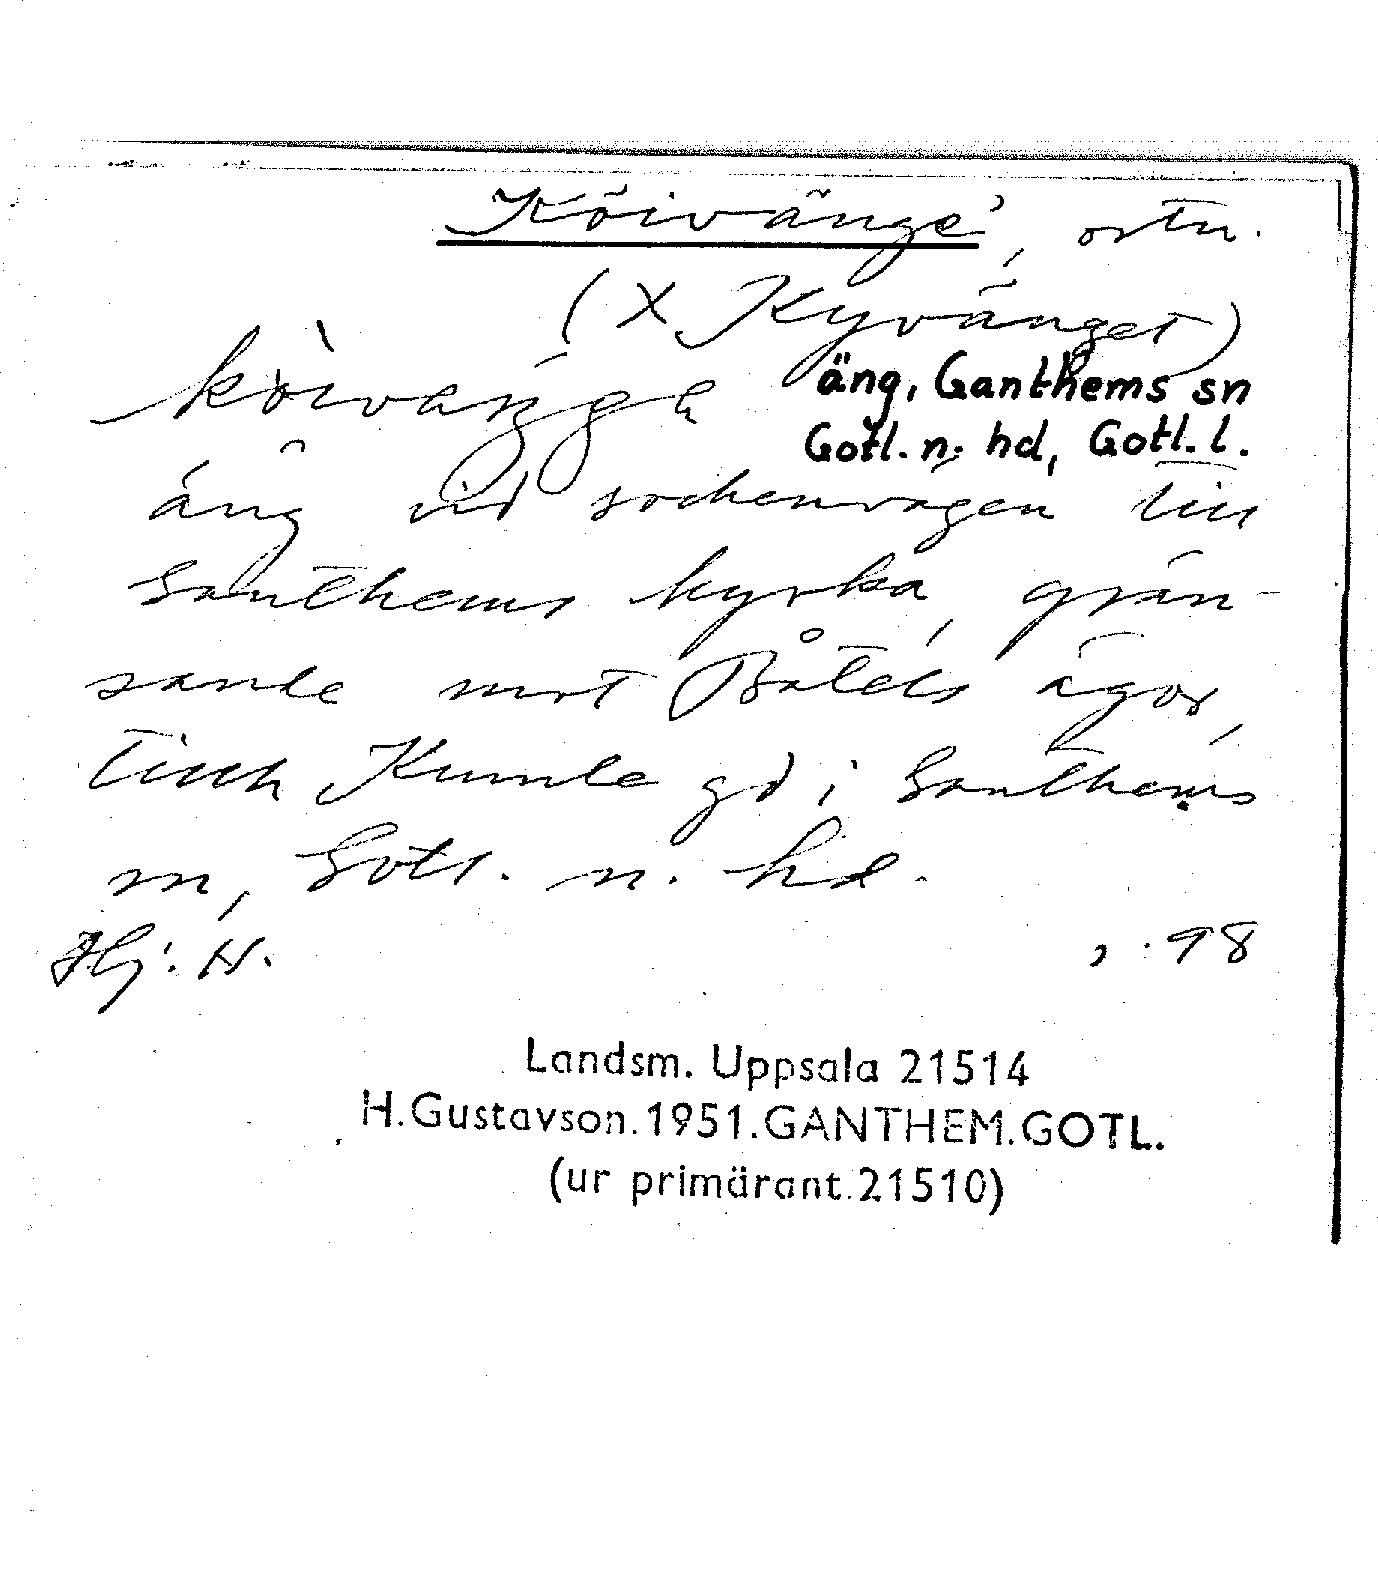 Köivänge, ortn.
(X Kyvänget)
köivaŋgɛ äng, Ganthems sn
Gotl. n. hd, Gotl. l.
äng vid sockenvägen till
Ganthems kyrka, grän-
sande mot Båtels ägor,
tillh Kumle gd i Ganthems
sn, Gotl. n. hd.
Hj. H. 98
Landsm. Uppsala 21514
H.Gustavson.1951.GANTHEM.GOTL.
(ur primärant.21510)